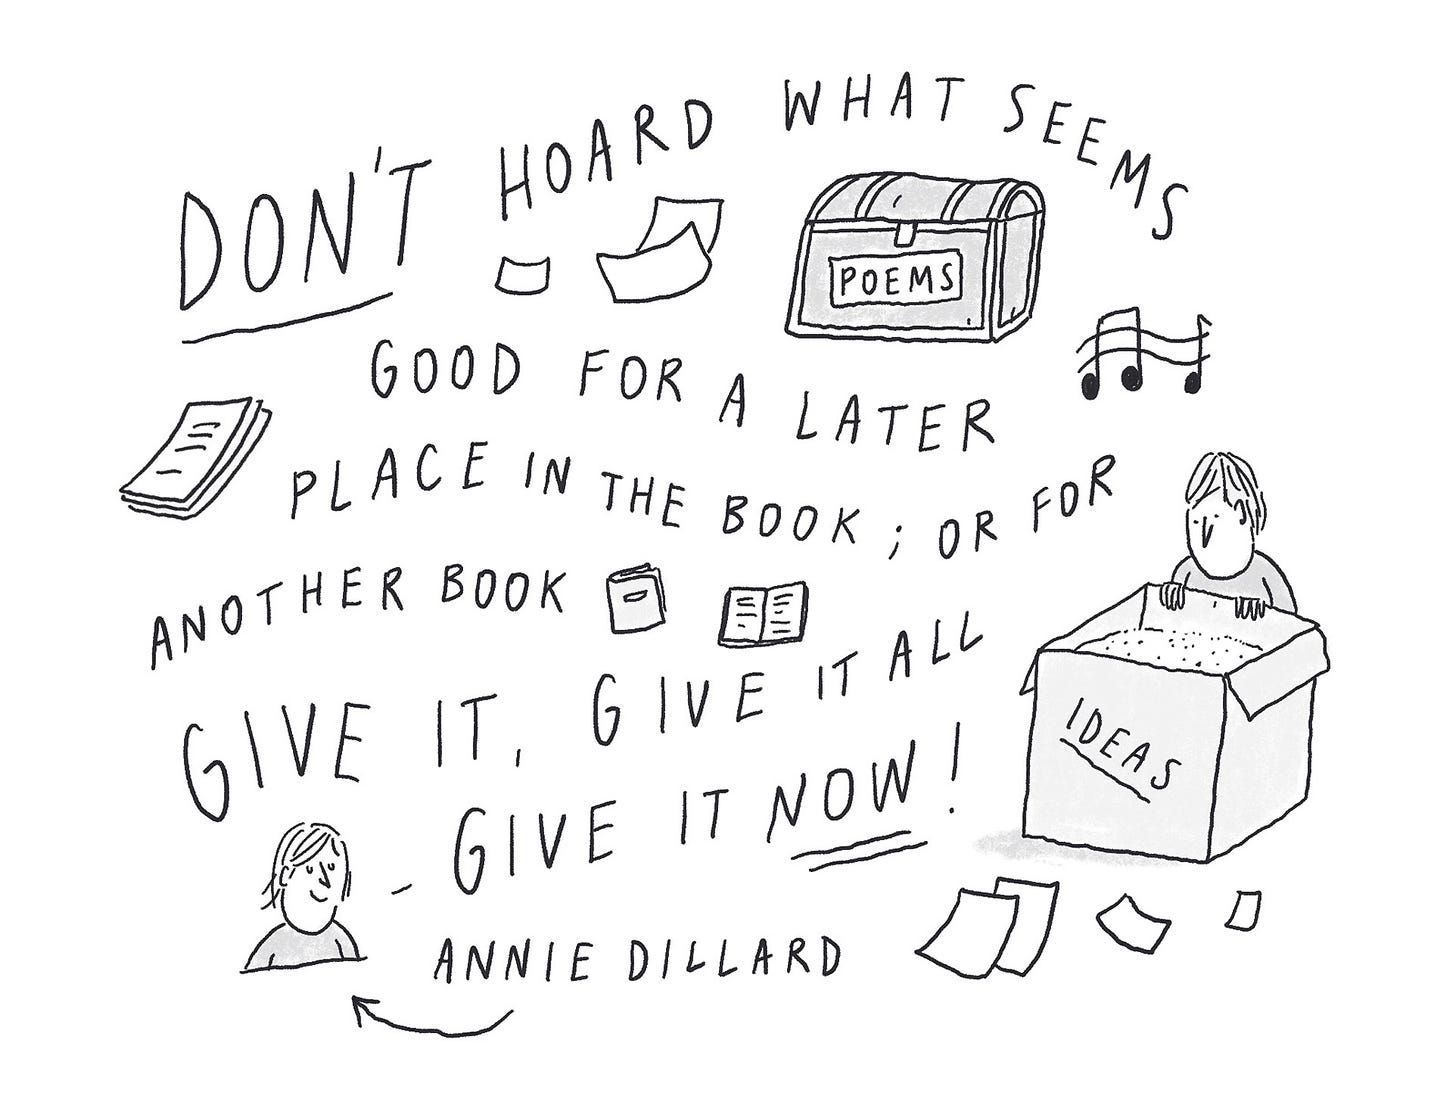 DON'T HOARD WHAT SEEMS
POEMS
GOOD FOR A LATER
PLACE IN THE BOOK ; OR FOR
ANOTHER BOOK
GIVE IT, GIVE IT ALL
IDEAS
- GIVE IT NOW!
ANNIE DILLARD